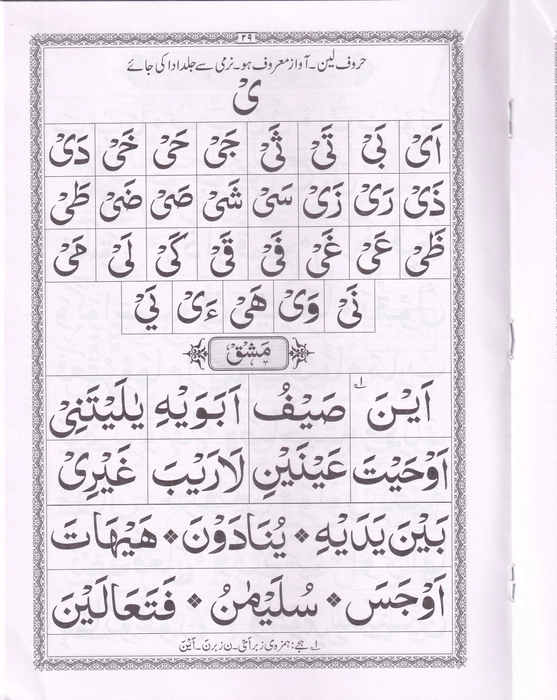 ٢٩
حروف لین۔ آواز معروف ہو۔ نرمی سے جلد ادا کی جائے
یْ
اَیْ بَیْ تَیْ ثَیْ جَیْ حَیْ خَیْ دَیْ
ذَیْ رَیْ زَیْ سَیْ شَیْ صَیْ ضَیْ طَیْ
ظَیْ عَیْ غَیْ فَیْ قَیْ کَیْ لَیْ مَیْ
نَیْ وَیْ هَیْ ءَیْ یَیْ
مَشْق
اَیْنَ ۱ صَیْفُ اَبَوَیْهِ یٰلَیْتَنِیْ
اَوْحَیْتَ عَیْنَیْنِ لَارَیْبَ غَیْرِیْ
بَیْنَ یَدَیْهِ ٭ یُنَادَوْنَ ٭ هَیْهَاتَ
اَوْجَسَ ٭ سُلَیْمٰنُ ٭ فَتَعَالَیْنَ
۱ ہجے: ہمزہ ی زبر اَیْ۔ ن زبر نَ۔ اَیْنَ